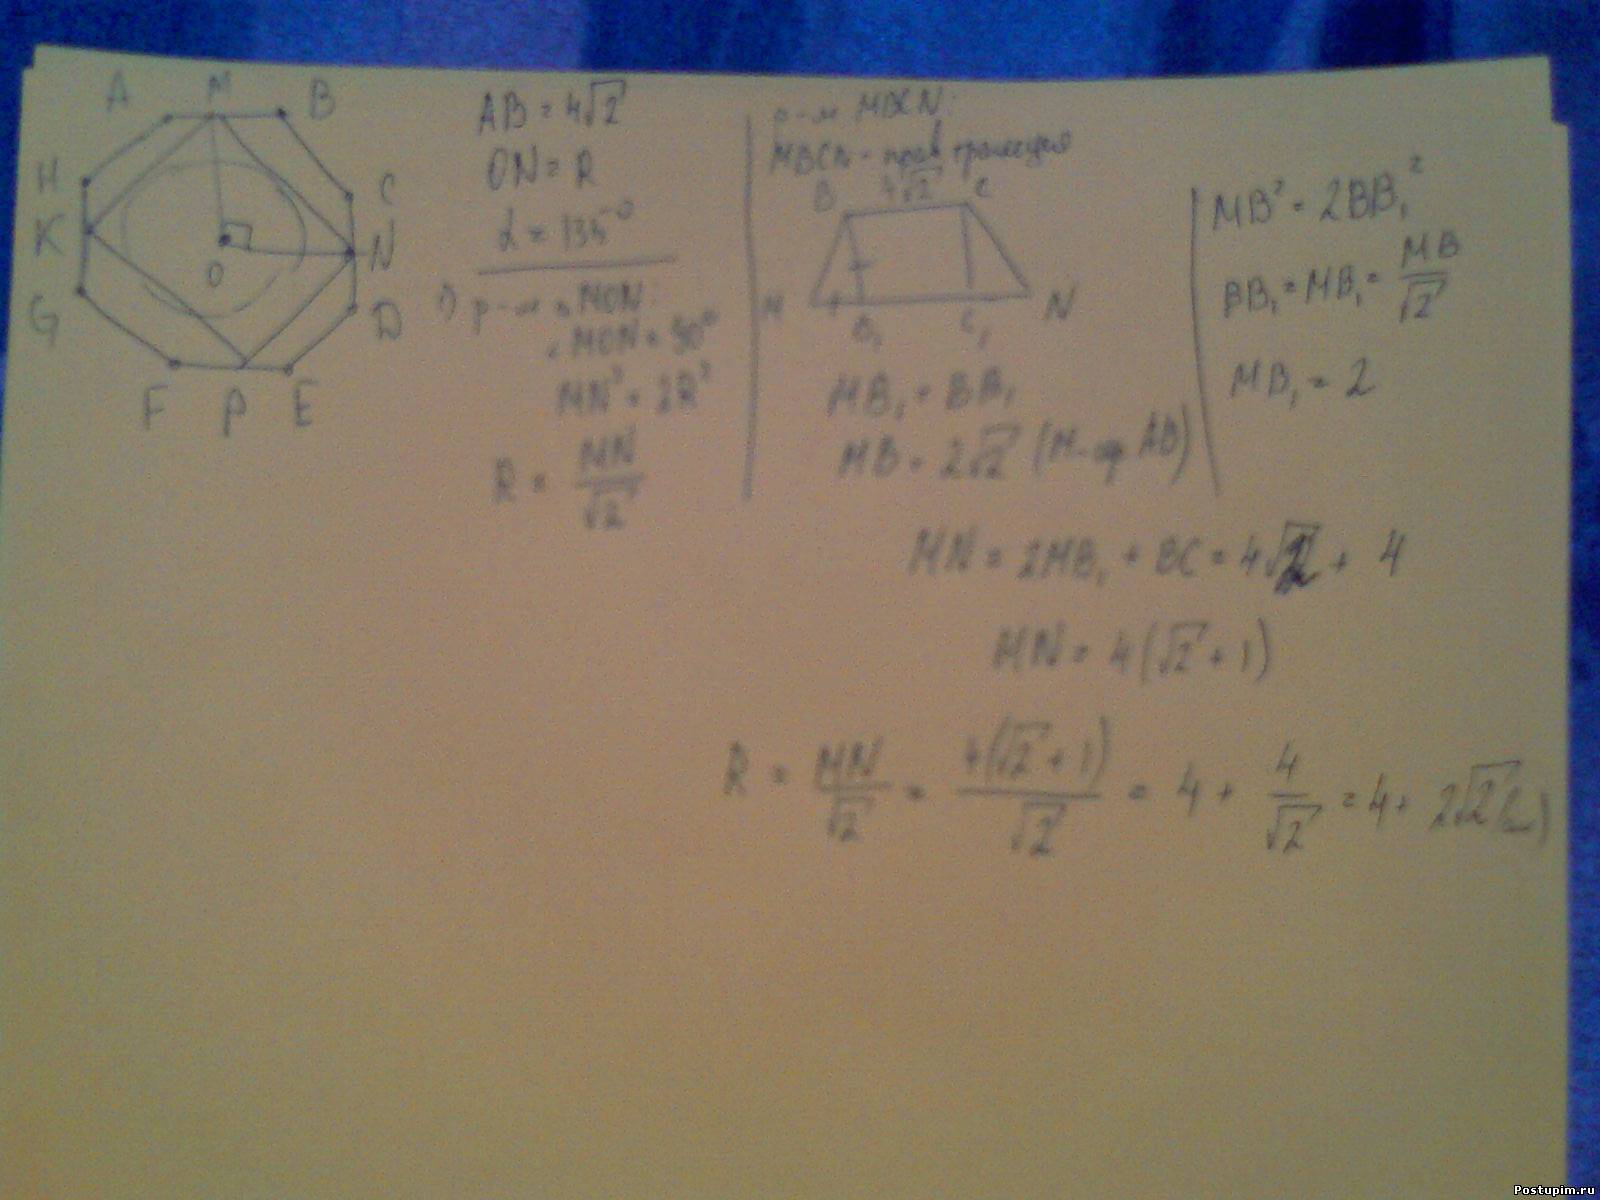 A M B
H C
K N
O
G D
F P E
AB = 4√2
ON = R
α = 135°
1) р-м MON:
∠MON = 90°
MN² = 2R²
R = MN/√2
р-м MBCN:
MBCN - трапеция
4√2
B C
M B₁ C₁ N
MB₁ = BB₁
MB = 2√2 (M - ср. AB)
MB² = 2BB₁²
BB₁ = MB₁ = MB/√2
MB₁ = 2
MN = 2MB₁ + BC = 4√2 + 4
MN = 4(√2 + 1)
R = MN/√2 = 4(√2 + 1)/√2 = 4 + 4/√2 = 4 + 2√2
Postupim.ru